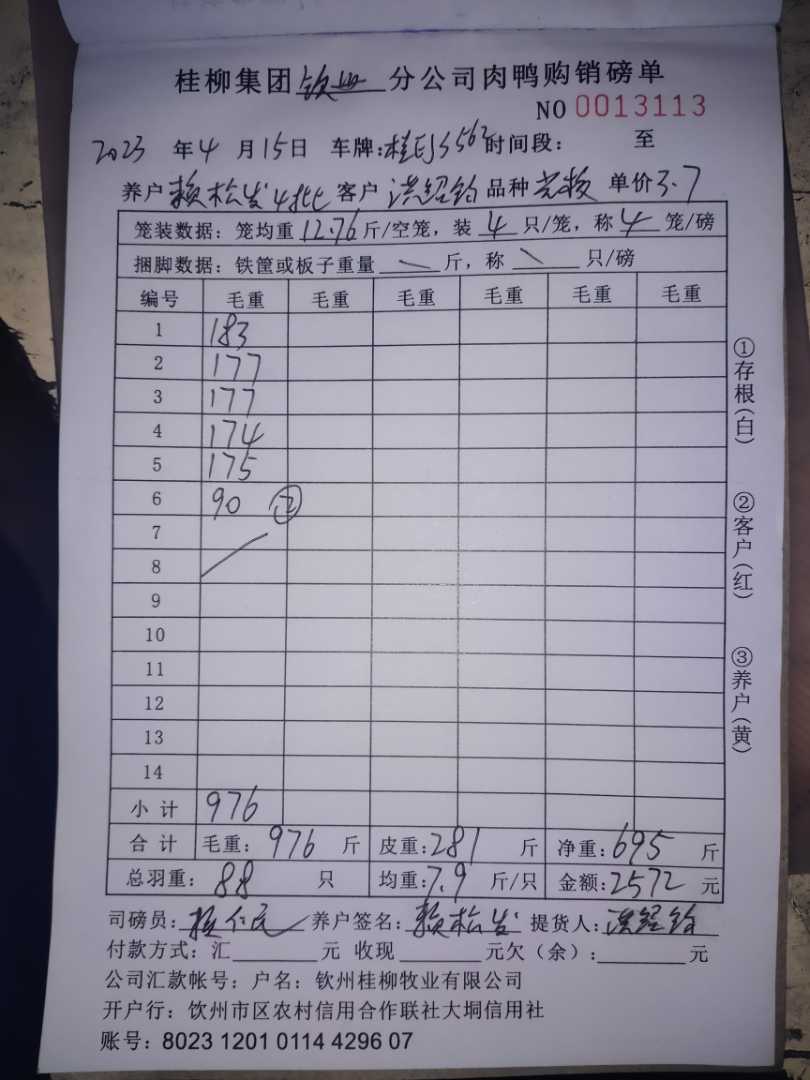 桂柳集团钦州分公司肉鸭购销磅单
NO 0013113
2023年4月15日 车牌:桂EJS562 时间段: 至
养户赖松发4批 客户洪绍钧 品种 单价3.7
笼装数据:笼均重12.76斤/空笼,装4只/笼,称4笼/磅
捆脚数据:铁筐或板子重量\斤,称\只/磅
编号 毛重 毛重 毛重 毛重 毛重 毛重
1 183
2 177
3 177
4 174
5 175
6 90 ②
7
8
9
10
11
12
13
14
小计 976
合计 毛重:976斤 皮重:281斤 净重:695斤
总羽重:88只 均重:7.9斤/只 金额:2572元
司磅员: 养户签名:赖松发 提货人:洪绍钧
付款方式:汇______元 收现______元欠(余):______元
公司汇款帐号:户名:钦州桂柳牧业有限公司
开户行:饮州市区农村信用合作联社大垌信用社
账号:8023 1201 0114 4296 07
①存根(白)
②客户(红)
③养户(黄)